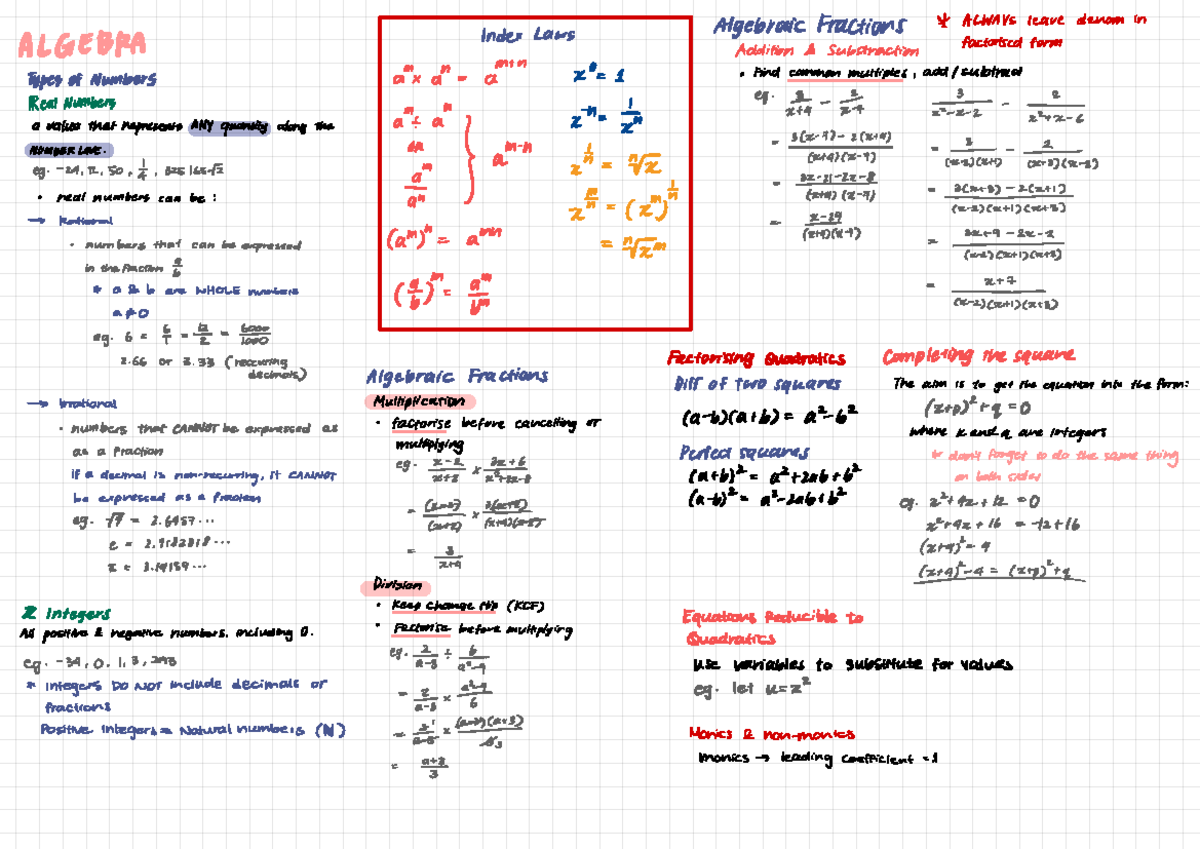 ALGEBRA
Types of Numbers
Real Numbers
a values that represents ANY quantity along the
NUMBER LINE.
• real numbers can be :
→ Rational
• numbers that can be expressed
in the fraction a/b
* a & b are WHOLE numbers
a ≠ 0
eg. 6 = 6/1 = 12/2 = 6000/1000
2.66 or 3.33 (reccuring
decimals)
→ Irrational
• numbers that CANNOT be expressed as
as a fraction
if a decimal is non-recurring, it CANNOT
be expressed as a fraction
eg. √7 = 2.6457...
e = 2.7182818...
π = 3.14159...
Z Integers
All positive & negative numbers, including 0.
eg. -34, 0, 1, 3, 293
* Integers DO NOT include decimals or
fractions
Positive integers = Natural numbers (N)
Index Laws
a^m × a^n = a^(m+n)
a^m ÷ a^n
or
a^m/a^n } a^(m-n)
(a^m)^n = a^(mn)
(a/b)^m = a^m/b^m
x^0 = 1
x^(-n) = 1/x^n
x^(1/n) = ⁿ√x
x^(m/n) = (x^m)^(1/n)
= ⁿ√x^m
Algebraic Fractions
Multiplication
• factorise before cancelling or
multiplying
eg. (x-2)/(x+2) × (3x+6)/(x²+2x-8)
= (x-2)/(x+2) × 3(x+2)/(x+4)(x-2)
= 3/(x+4)
Division
• Keep change flip (KCF)
• Factorise before multiplying
eg. 2/(a-3) ÷ 6/(a²-9)
= 2/(a-3) × (a²-9)/6
= 2¹/(a-3) × (a-3)(a+3)/6 3
= (a+3)/3
Algebraic Fractions
* ALWAYS leave denom in
factorised form
Addition & Substraction
• Find common multiples, add/subtract
eg. 3/(x+4) - 2/(x-7)
= 3(x-7) - 2(x+4)/(x+4)(x-7)
= 3x-21-2x-8/(x+4)(x-7)
= x-29/(x+4)(x-7)
3/(x²-x-2) - 2/(x²+x-6)
= 3/(x-2)(x+1) - 2/(x+3)(x-2)
= 3(x+3) - 2(x+1)/(x-2)(x+1)(x+3)
= 3x+9-2x-2/(x-2)(x+1)(x+3)
= x+7/(x-2)(x+1)(x+3)
Factorising Quadratics
Diff of two squares
(a-b)(a+b) = a²-b²
Perfect squares
(a+b)² = a²+2ab+b²
(a-b)² = a²-2ab+b²
Completing the square
The aim is to get the equation into the form:
(x+p)²+q = 0
where x and q are integers
* don't forget to do the same thing
on both sides
eg. x²+4x+12 = 0
x²+4x+16 = -12+16
(x+4)² = 4
(x+4)²-4 = (x+p)²+q
Equations Reducible to
Quadratics
Use variables to substitute for values
eg. let u = x²
Monics & non-monics
monics → leading coefficient = 1